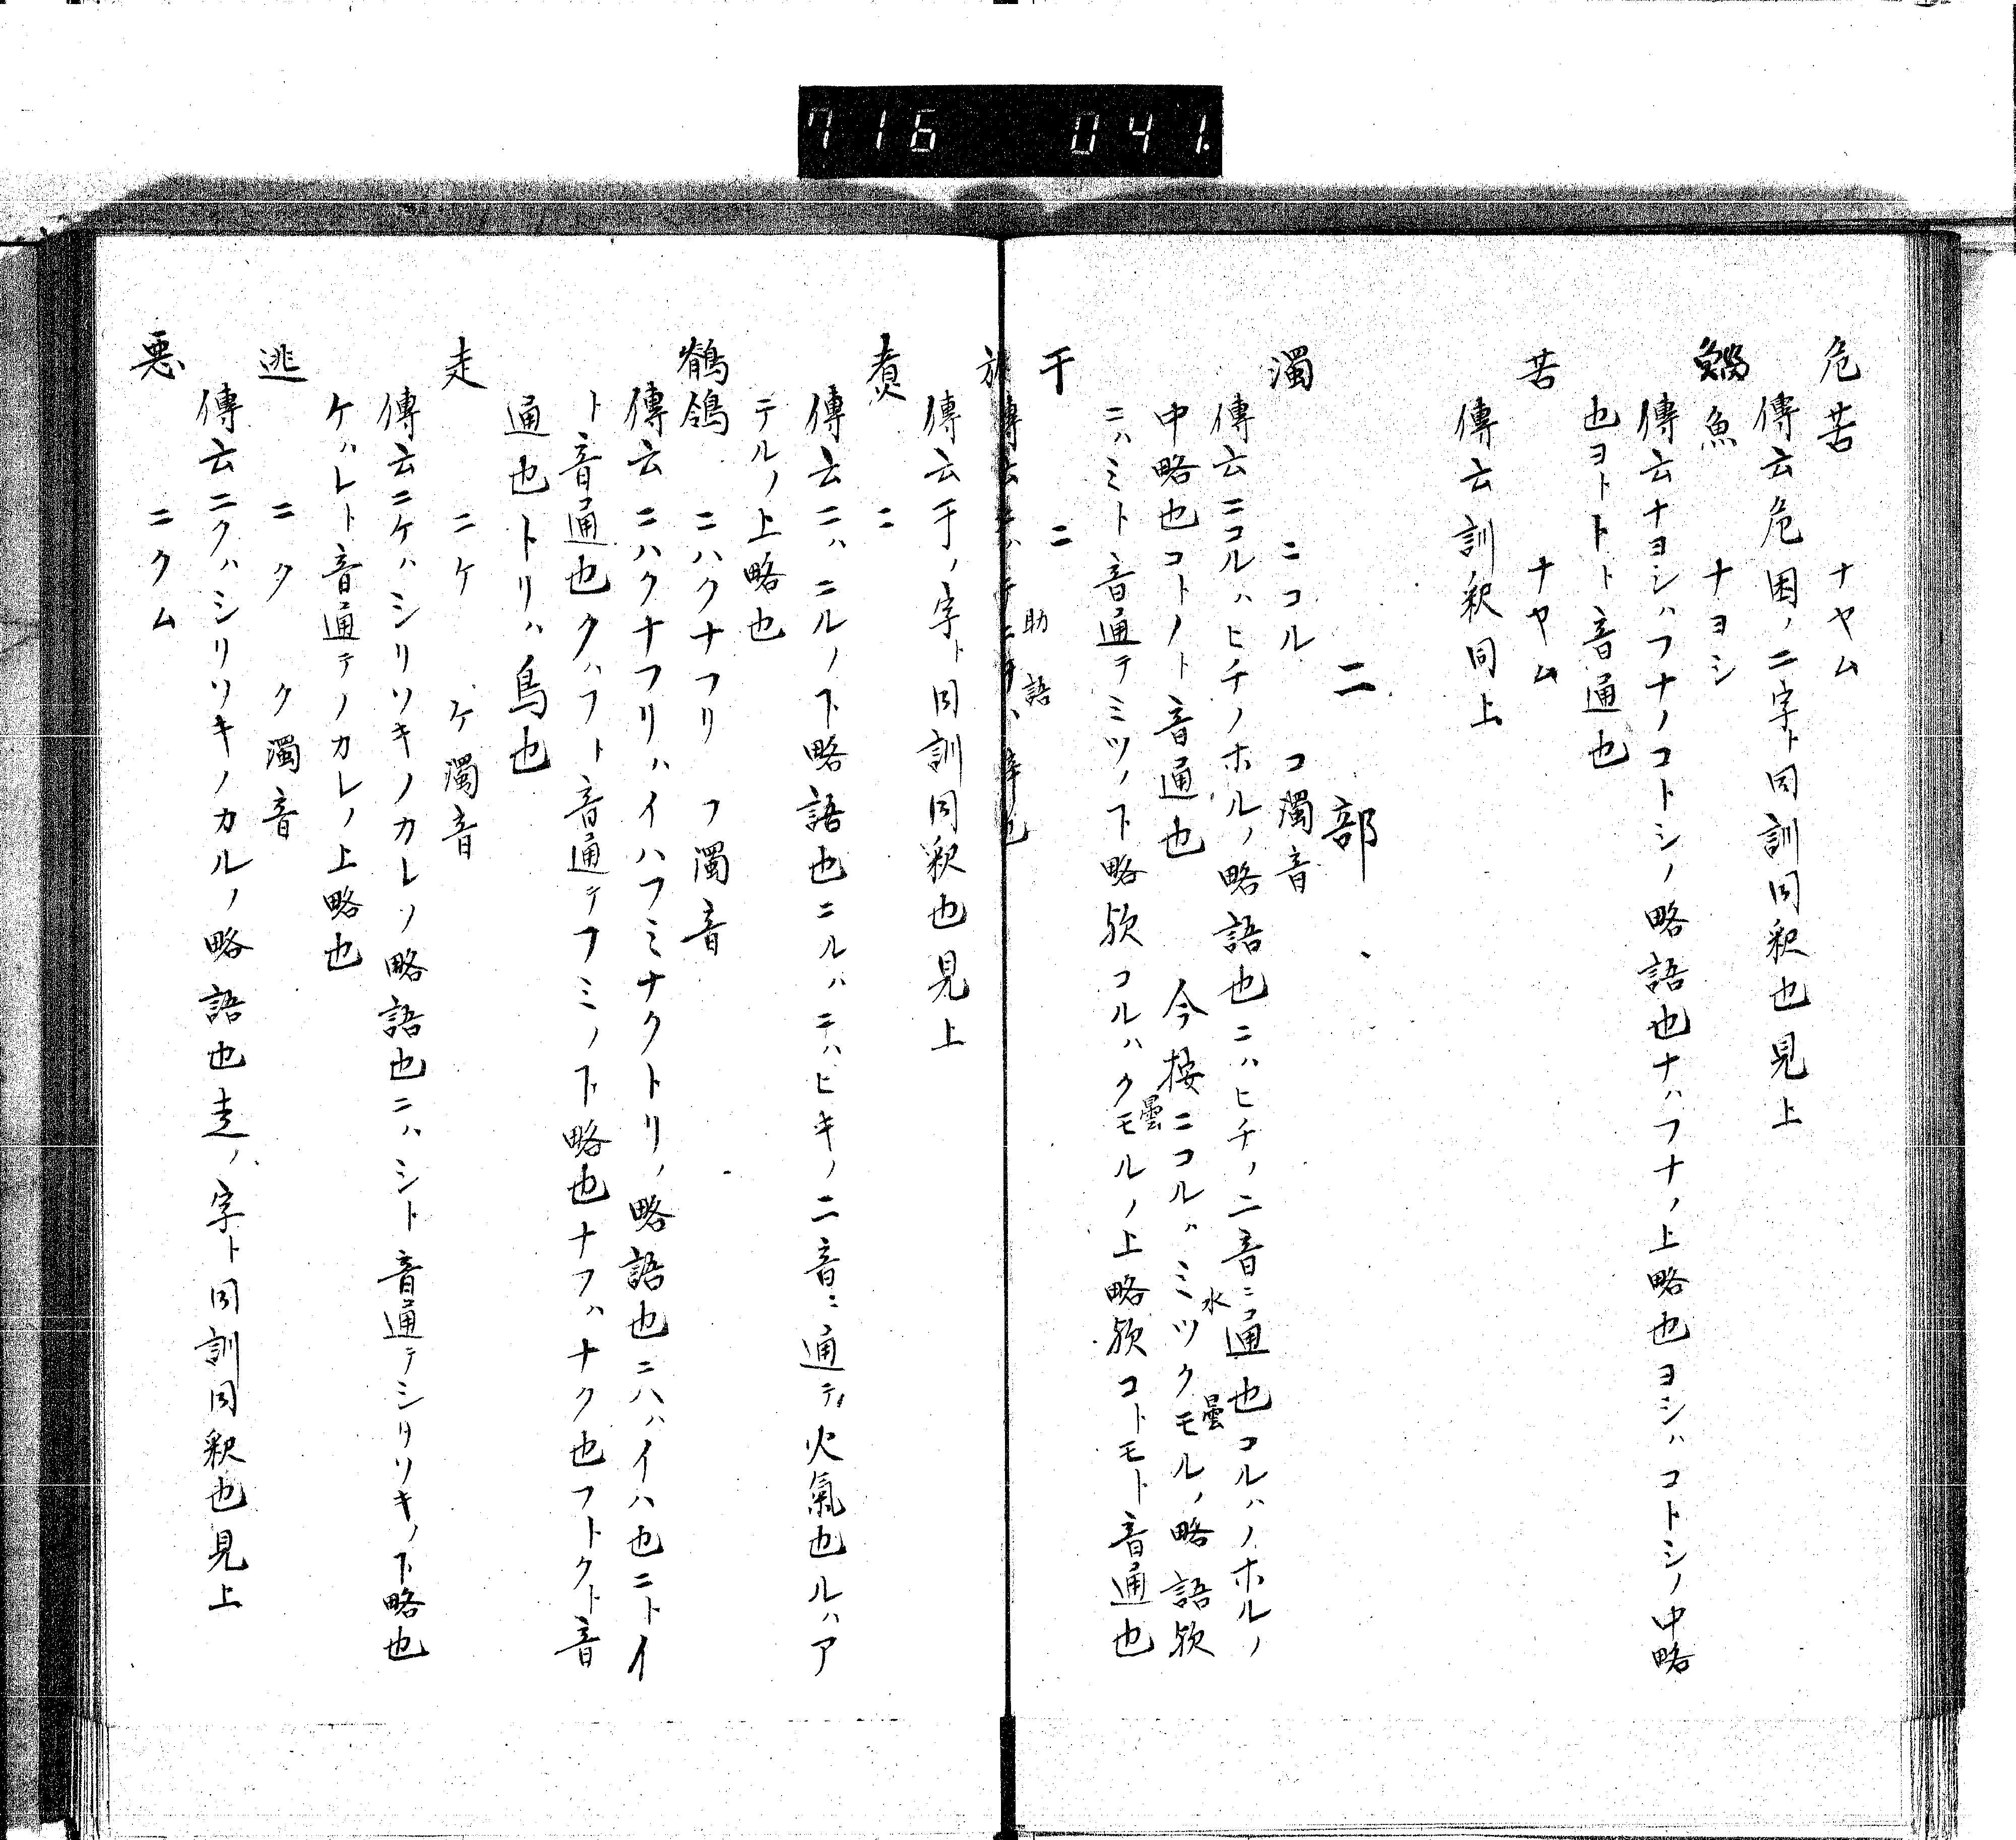 716 041.
危苦 ナヤム
傳云危困ノ二字ト同訓同釈也見上
魚 ナヨシ
傳云ナヨシハフナノコトシノ略語也ナハフナノ上略也ヨシハコトシノ中略
也ヨトトト音通也
苦 ナヤム
傳云訓釈同上
ニ部
濁 ニコル コ濁音
傳云ニコルハヒチノホルノ略語也ニハヒチノ二音ニ通也コルハノホルノ
中略也コトノト音通也 今按ニコルハミツクモルノ略語欤
水 曇
ニハミト音通テミツノ下略欤コルハクモルノ上略欤コトモト音通也
曇
于 ニ 助語
傳云
於 ニ
傳云于ノ字ト同訓同釈也見上
煮 ニ
傳云ニハニルノ下略語也ニルハニハヒキノ二音ニ通テ火氣也ルハア
テルノ上略也
鶺鴒 ニハクナフリ フ濁音
傳云ニハクナフリハイハフミナクトリノ略語也ニハハイハ也ニトイ
ト音通也クハフト音通テフミノ下略也ナフハナク也フトクト音
通也トリハ鳥也
走 ニケ ケ濁音
傳云ニケハシリソキノカレノ略語也ニハシト音通テシリソキノ下略也
ケハレト音通テノカレノ上略也
逃 ニク ク濁音
傳云ニクハシリソキノカルノ略語也走ノ字ト同訓同釈也見上
悪 ニクム